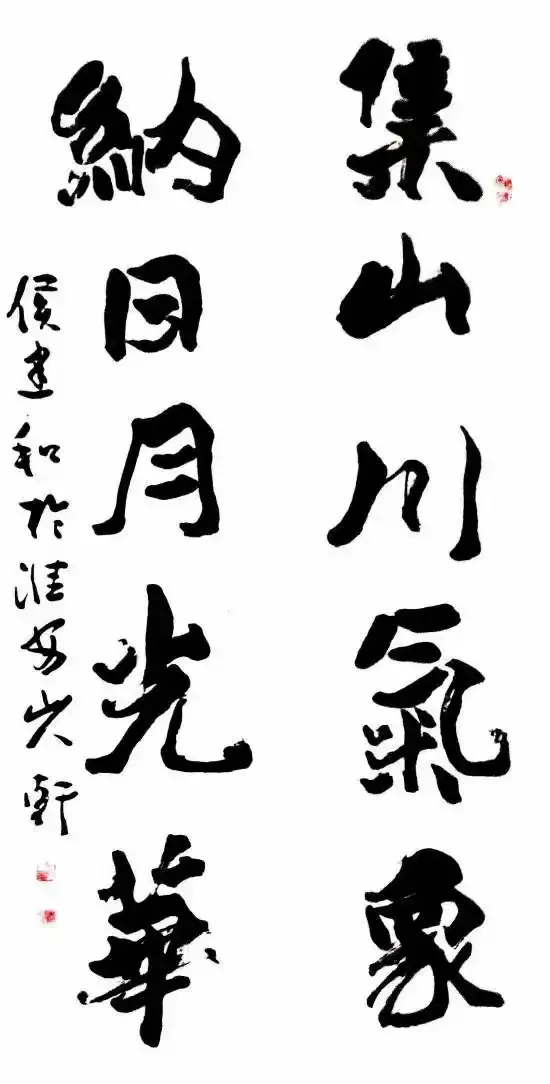 集山川氣象
納日月光華
侯建和於淮安火軒